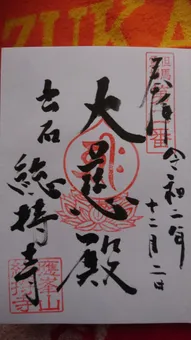 奉拝
令和二年
十二月二日
大悲殿
出石
総持寺
ZUKA